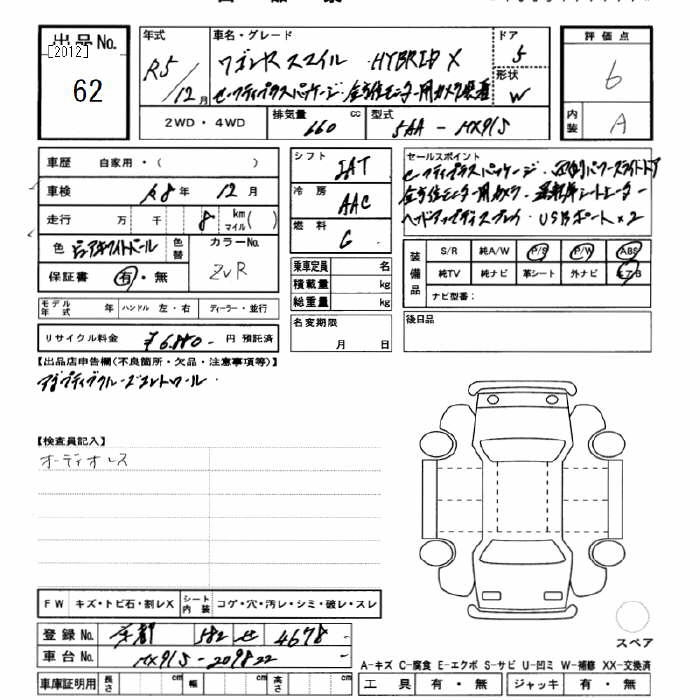 出品No.
[2012]
62
年式
R5/12月
車名・グレード
ワゴンRスマイル HYBRID X
セーフティプラスパッケージ・全方位モニター用カメラ装着
ドア
5
形状
W
評価点
6
内装
A
2WD・4WD
排気量
660 cc
型式
5AA - MX91S
車歴 自家用・( )
車検 R8年 12月
走行 万 千 8 km マイル( )
色 ピュアホワイトパール
色替
カラーNo.
ZVR
保証書 有・無
シフト
IAT
冷房
AAC
燃料
G
セールスポイント
セーフティプラスパッケージ・両側パワースライドドア
全方位モニター用カメラ・運転席シートヒーター
ヘッドアップディスプレイ・USBポート×2
装備品
S/R 純A/W P/S P/W ABS
純TV 純ナビ 革シート 外ナビ エアB
ナビ型番:
乗車定員 名
積載量 kg
総重量 kg
モデル年式 年 ハンドル 左・右 ディーラー・並行
リサイクル料金 ¥6,880- 円 預託済
名変期限
月 日
後日品
【出品店申告欄(不良箇所・欠品・注意事項等)】
アダプティブクルーズコントロール・
【検査員記入】
オーディオレス
FW キズ・トビ石・割レX シート内装 コゲ・穴・汚レ・シミ・破レ・スレ
登録No. 京都 582 せ 4678 -
車台No. MX91S-209822 -
車庫証明用 長さ cm 幅 cm 高さ cm
スペア
A-キズ C-腐食 E-エクボ S-サビ U-凹ミ W-補修 XX-交換済
工具 有・無 ジャッキ 有・無